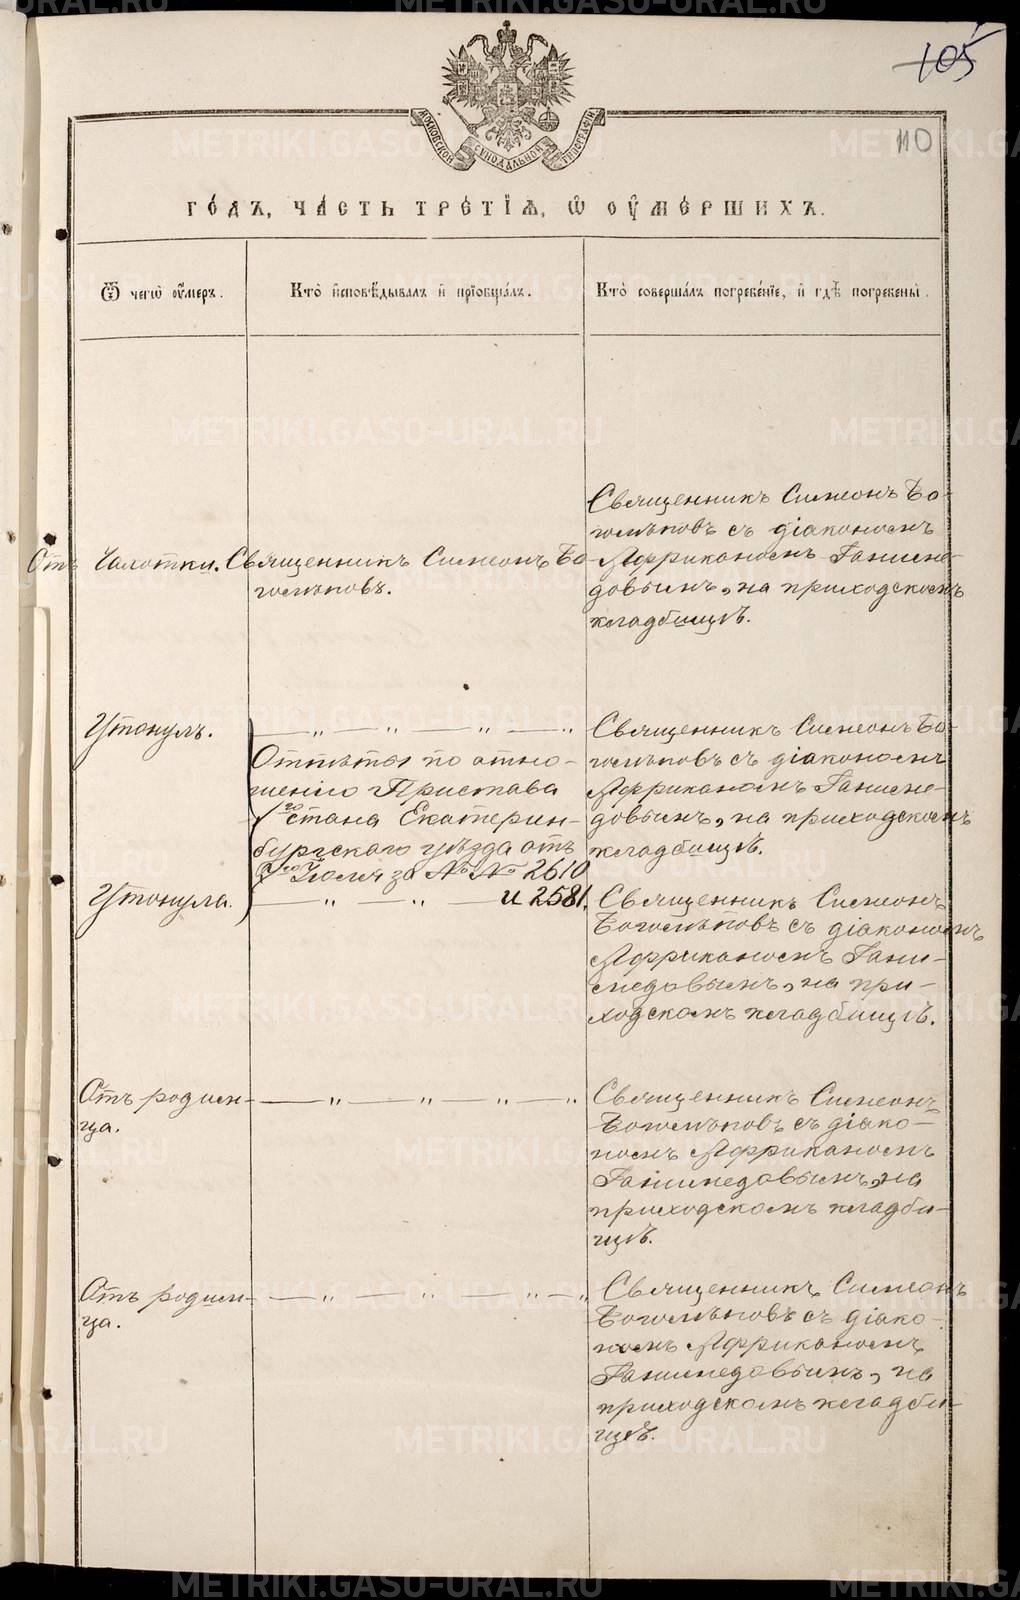 105
110
МОСКОВСКОЙ СѴНОДАЛЬНОЙ ТИПОГРАФІИ
го́дъ, ча́сть тре́тїѧ, ѡ҆ ᲂу҆ме́ршихъ.
Ѿ чегѡ̀ ᲂу҆́меръ.
Кто̀ и҆сповѣ́дывалъ и҆ прїѻбща́лъ.
Кто̀ соверша́лъ погребе́нїе, и҆ гдѣ̀ погребены̀.
Отъ Чахотки.
Священникъ Симеонъ Бо-
гомѣповъ.
Священникъ Симеонъ Бо-
с діакономъ
Африканомъ Ганиме-
довымъ, на приходскомъ
кладбищѣ.
Утонулъ.
— „ — „ — „ — „
Отпѣты по отно-
шенію Пристава
1го стана Екатерин-
бургскаго уѣзда отъ
Іюля за №№ 2610
и 2581.
Священникъ Симеонъ Бо-
съ діакономъ
Африканомъ Ганиме-
довымъ, на приходскомъ
кладбищѣ.
Утонула.
— „ — „ —
Священникъ Симеонъ
съ діакономъ
Африканомъ Гани-
медовымъ, на при-
ходскомъ кладбищѣ.
Отъ родим-
ца.
— „ — „ — „ — „
Священникъ Симеонъ
съ діако-
номъ Африканомъ
Ганимедовымъ, на
приходскомъ кладби-
щѣ.
Отъ родим-
ца.
— „ — „ — „ — „
Священникъ Симеонъ
съ діако-
номъ Африканомъ
Ганимедовымъ, на
приходскомъ кладби-
щѣ.
METRIKI.GASO-URAL.RU